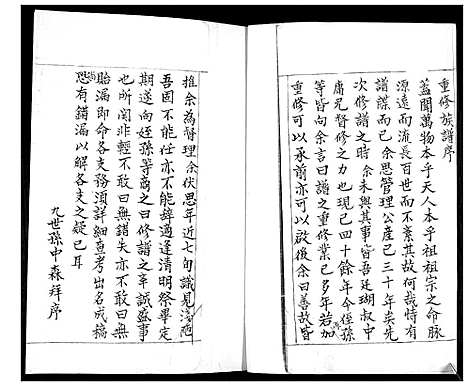 重修族譜序
蓋聞萬物本乎天人本乎祖祖宗之命脉
源遠而流長百世而不紊其故何哉恃有
譜諜而已余思管理公產已三十年矣先
次修譜之時余未與其事皆吾廷瑚叔中
庸兄督修之力也現已四十餘年今侄孫
等皆向余言曰譜之重修業已多年若加
重修可以承前亦可以啟後余曰善故皆
推余為督理余伏思年近七旬識見淺陋
吾固不能任亦不能辭適逢清明祭畢定
期遂向姪孫等商之曰修譜之辛誠盛事
也所関非輕不敢曰無錯失亦不敢曰無
貽漏即命各支務須詳細查考出名成稿
恐有錯漏以解各支之疑已耳
九世孫中森拜序